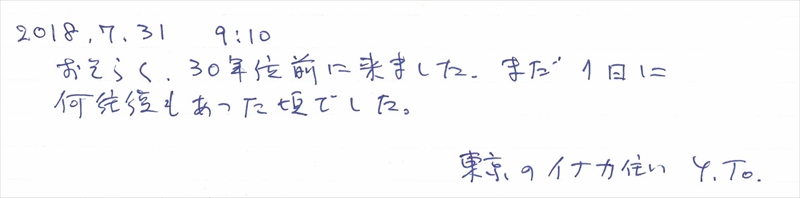 2018.7.31 9:10
おそらく、30年位前に来ました。まだ1日に
何往復もあった頃でした。
東京のイナカ住い Y.To.